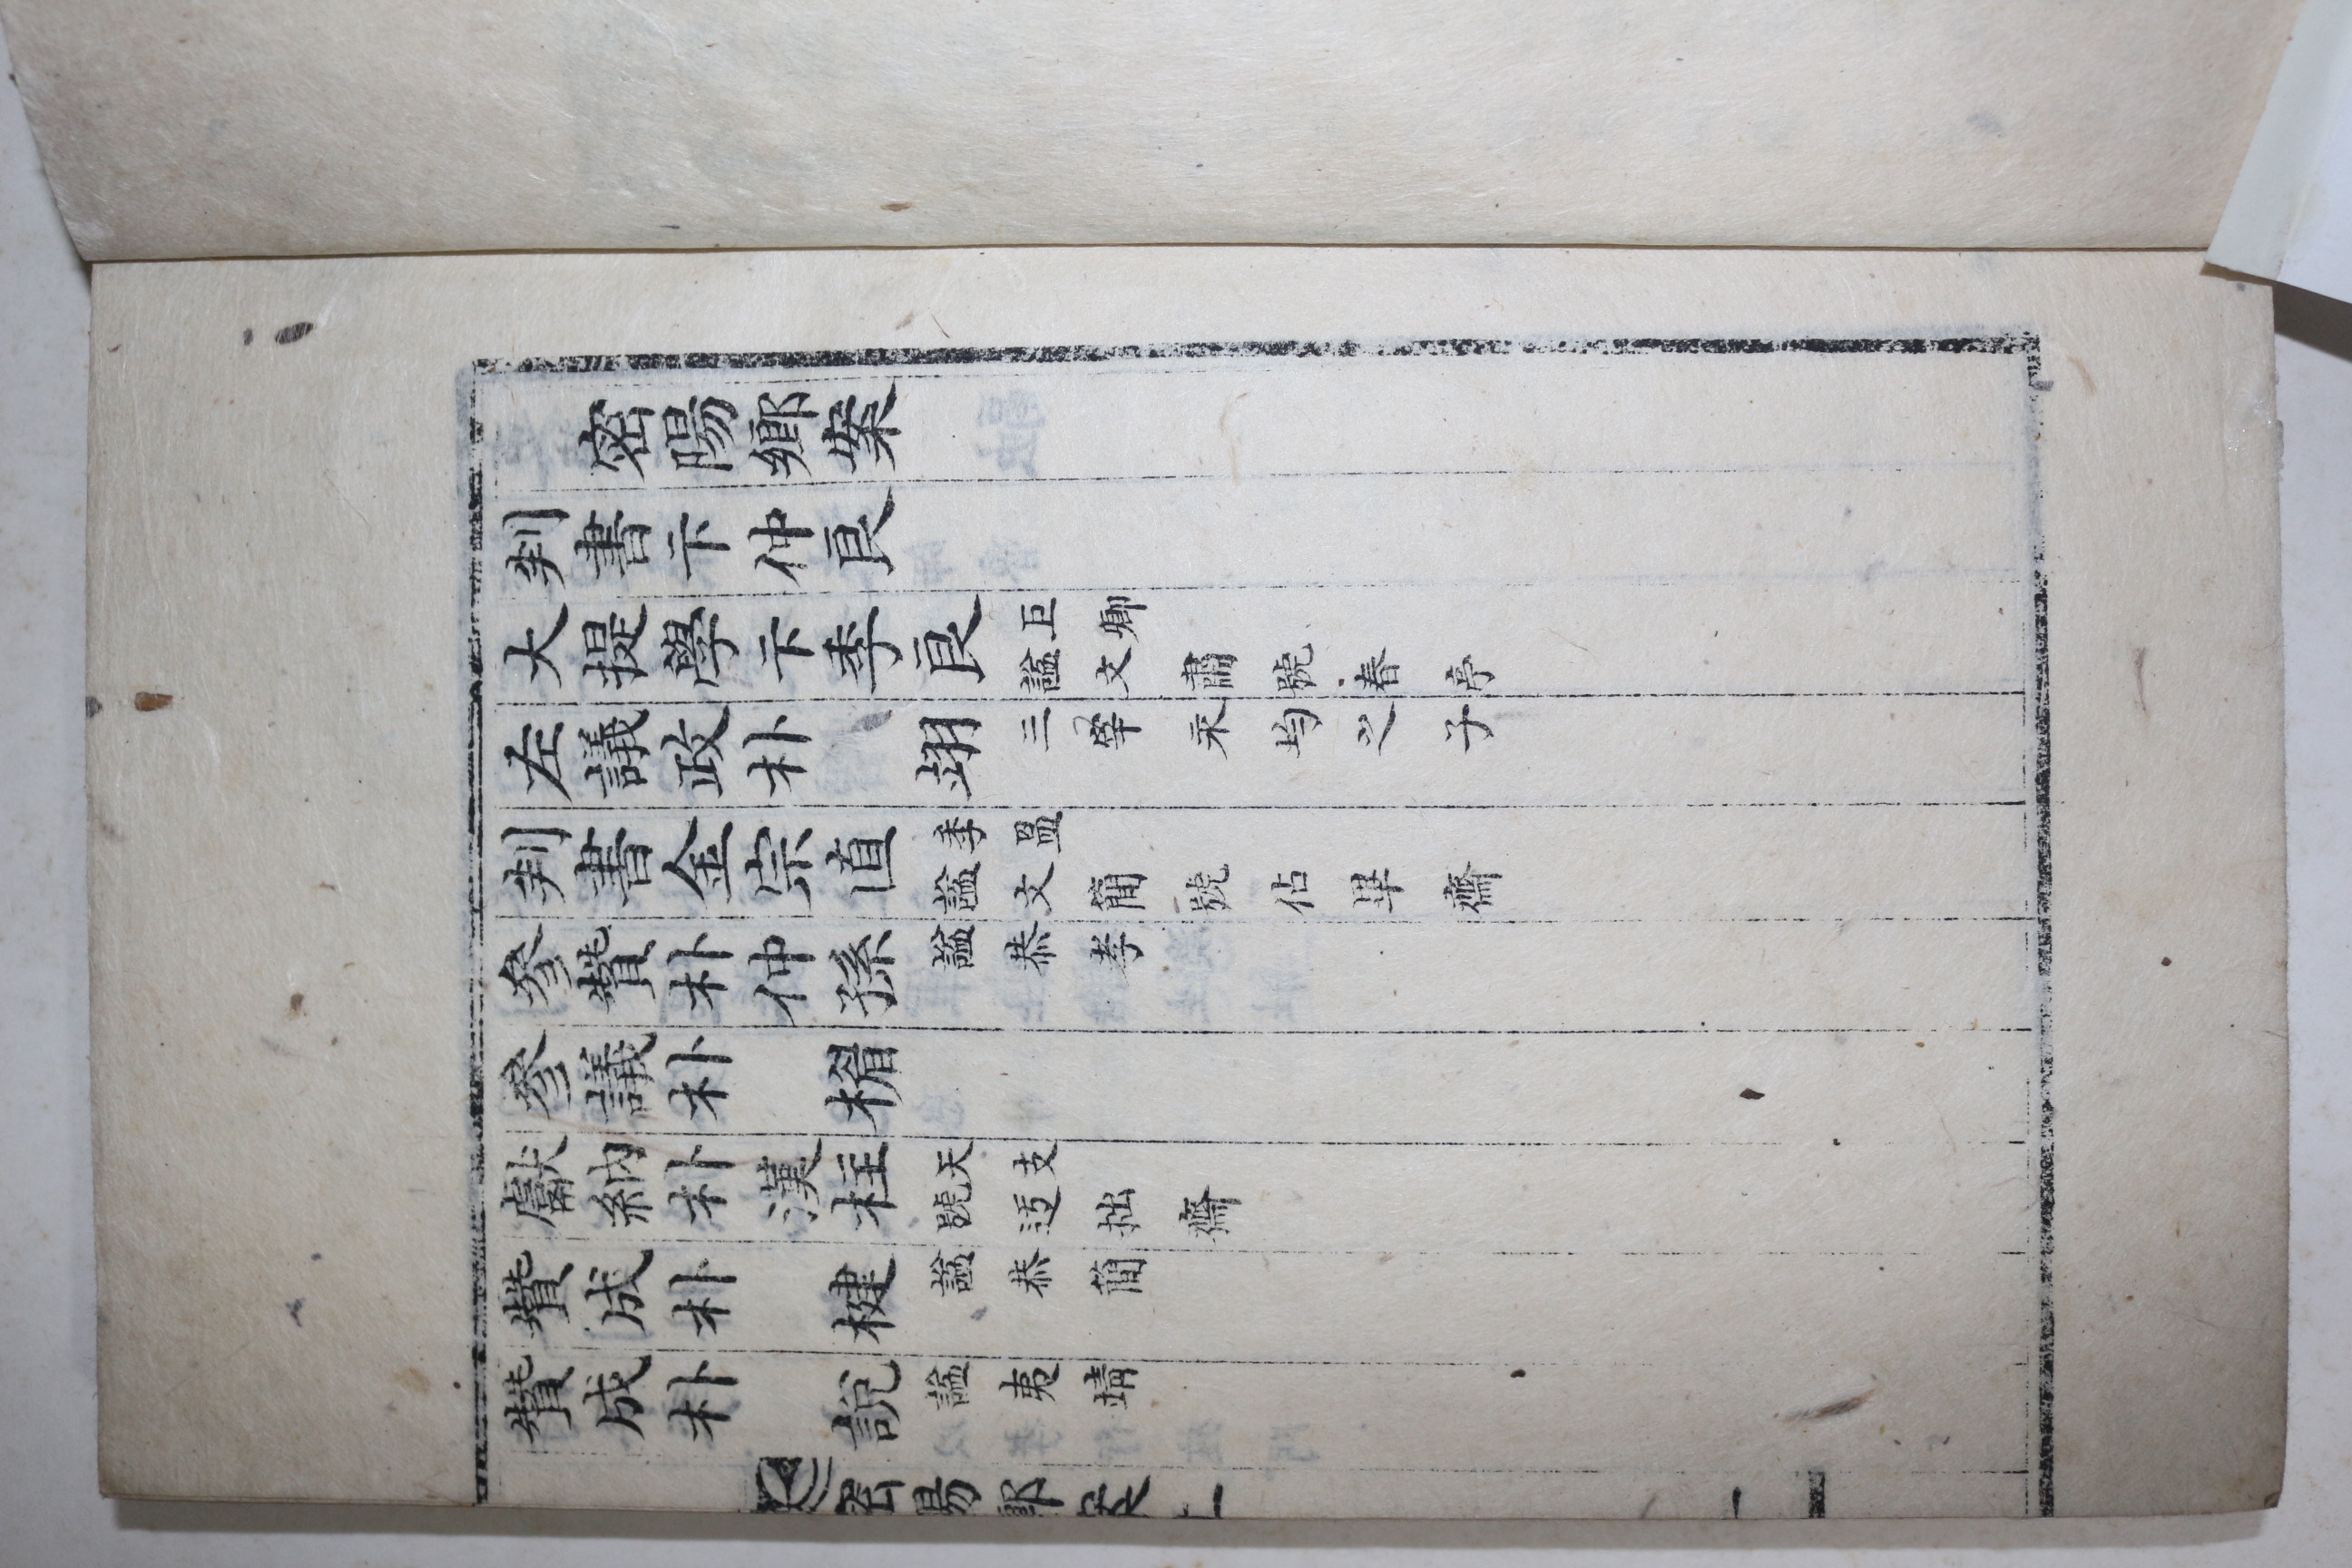 密陽鄉案
判書卞仲良
大提學卞季良 巨卿 諡文肅號春亭
左議政朴翊 三宰永均之子
判書金宗直 季昷 諡文簡號佔畢齋
參贊朴仲孫 諡恭孝
參議朴楣
獻納朴漢柱 天支 號迃拙齋
贊成朴楗 諡恭簡
贊成朴說 諡夷靖
密陽鄉案上 一